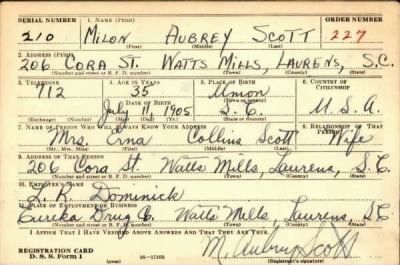 SERIAL NUMBER 1. NAME (Print) ORDER NUMBER
210 MILON AUBREY SCOTT 227
(First) (Middle) (Last)
2. ADDRESS (Print)
206 CORA ST. WATTS MILLS, LAURENS, S.C.
(Number and street or R. F. D. number) (Town) (County) (State)
3. TELEPHONE 4. AGE IN YEARS 5. PLACE OF BIRTH 6. COUNTRY OF CITIZENSHIP
712 35 Union
DATE OF BIRTH
July 11, 1905 S.C. U.S.A.
(Exchange) (Number) (Mo.) (Day) (Yr.) (State or country)
7. NAME OF PERSON WHO WILL ALWAYS KNOW YOUR ADDRESS 8. RELATIONSHIP OF THAT PERSON
Mrs. Erna Collins Scott Wife
(Mr., Mrs., Miss) (First) (Middle) (Last)
9. ADDRESS OF THAT PERSON
206 Cora St. Watts Mills, Laurens, S.C.
(Number and street or R. F. D. number) (Town) (County) (State)
10. EMPLOYER'S NAME
L. R. Dominick
11. PLACE OF EMPLOYMENT OR BUSINESS
Eureka Drug Co. Watts Mills, Laurens, S.C.
(Number and street or R. F. D. number) (Town) (County) (State)
I AFFIRM THAT I HAVE VERIFIED ABOVE ANSWERS AND THAT THEY ARE TRUE.
REGISTRATION CARD
D. S. S. Form 1 16-17105 M. Aubrey Scott